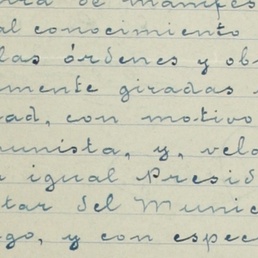 ra de manifes
al conocimiento
las órdenes y ob
mente giradas
ad, con motivo
unista, y, vela
igual Presid
tar del Munic
go, y con espec